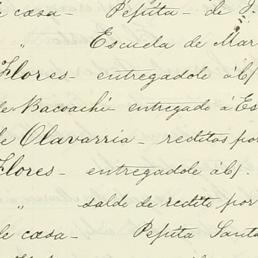 de casa - Pepita - de J.
" Escuela de Mar
Flores - entregadole á b/
de Bacoachi entregado á Es
de Olavarria - reditos por
Flores - entregadole á b/.
" saldo de redito por
de casa - Pepita Santa